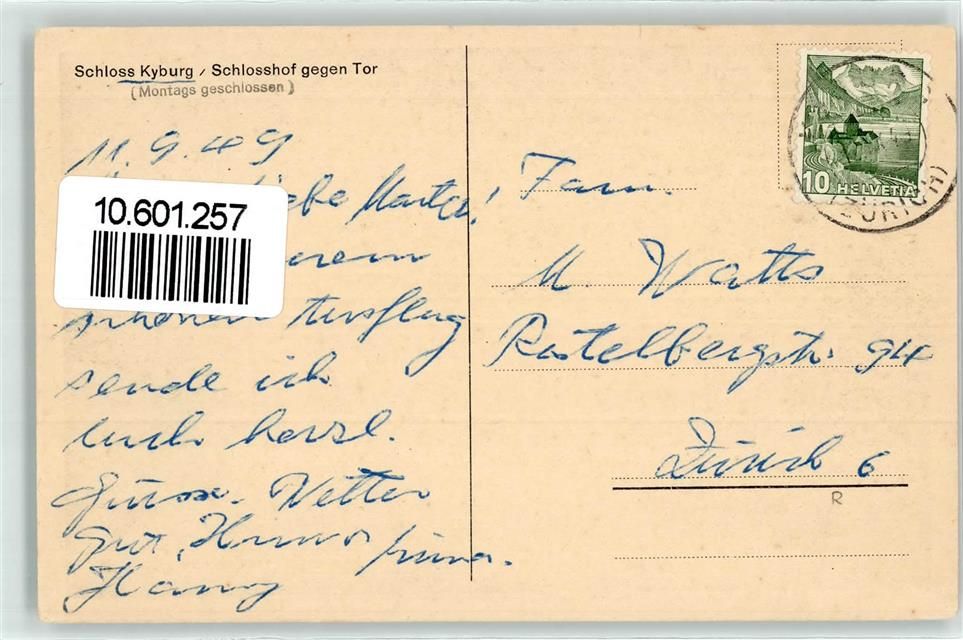 Schloss Kyburg / Schlosshof gegen Tor
(Montags geschlossen)
11.9.49
liebe
10.601.257
schönen Ausflug
sende ich
Euch herzl.
Grüsse. Wetter
gut, Humor prima.
Hanny
Fam.
M. Watts
Rastelbergstr. 94
Zürich 6
R
10 HELVETIA
(ZÜRICH)